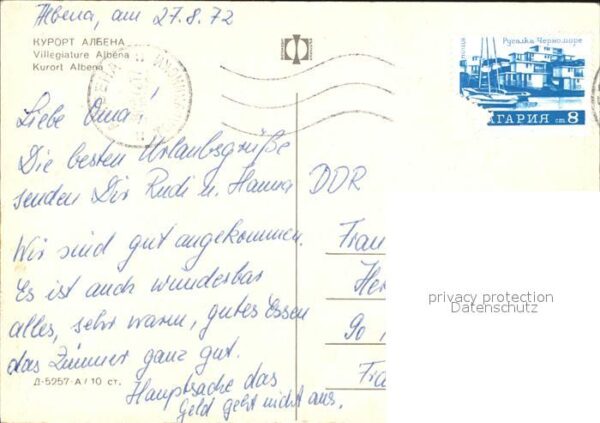 Албена, am 27.8.72
КУРОРТ АЛБЕНА
Villegiature Albena
Kurort Albena
Русалка Черноморе
ЛГАРИЯ ст. 8
Liebe Oma!
Die besten Urlaubsgrüße
senden Dir Rudi u. Hanna
DDR
Wir sind gut angekommen.
Es ist auch wunderbar
alles, sehr warm, gutes Essen
das Zimmer ganz gut.
Hauptsache das
Geld geht nicht aus.
Frau
Her
90
Fra
privacy protection
Datenschutz
Д-5257-А / 10 ст.